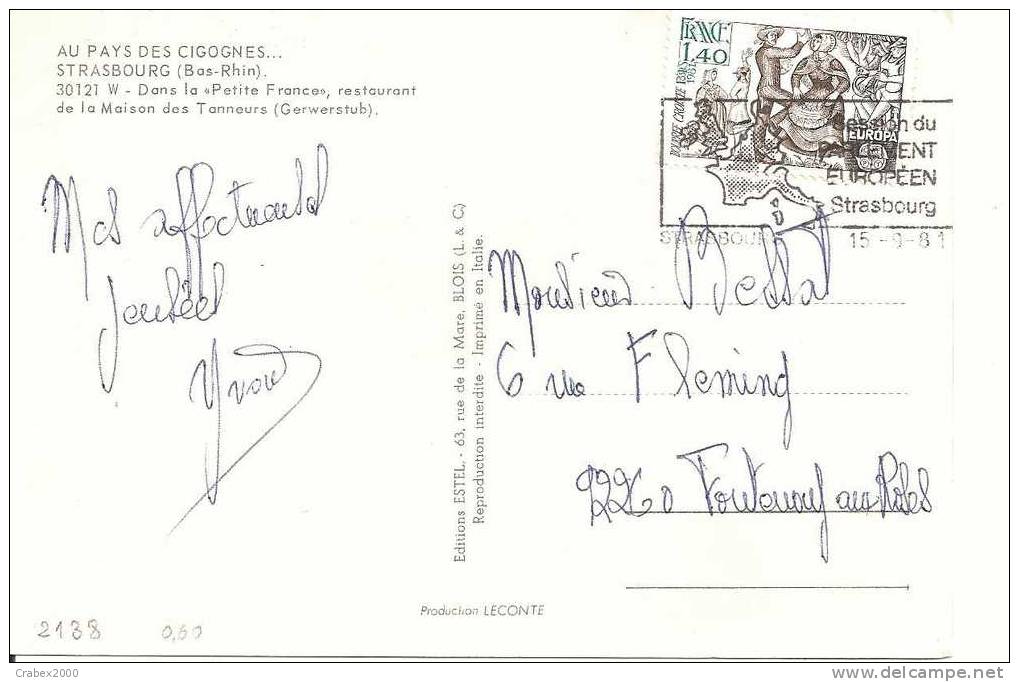 AU PAYS DES CIGOGNES...
STRASBOURG (Bas-Rhin).
30121 W - Dans la «Petite France», restaurant
de la Maison des Tanneurs (Gerwerstub).
FRANCE
1,40
EUROPA
Session du
PARLEMENT
EUROPÉEN
Strasbourg
STRASBOURG
15-9-81
Mes affectueuses
pensées
Editions ESTEL, - 63, rue de la Mare, BLOIS (L. & C)
Reproduction interdite - Imprimé en Italie.
Monsieur Bessat
6 rue Fleming
92260 Fontenay aux Roses
Production LECONTE
2138 0,60
Crabex2000
delcampe.net